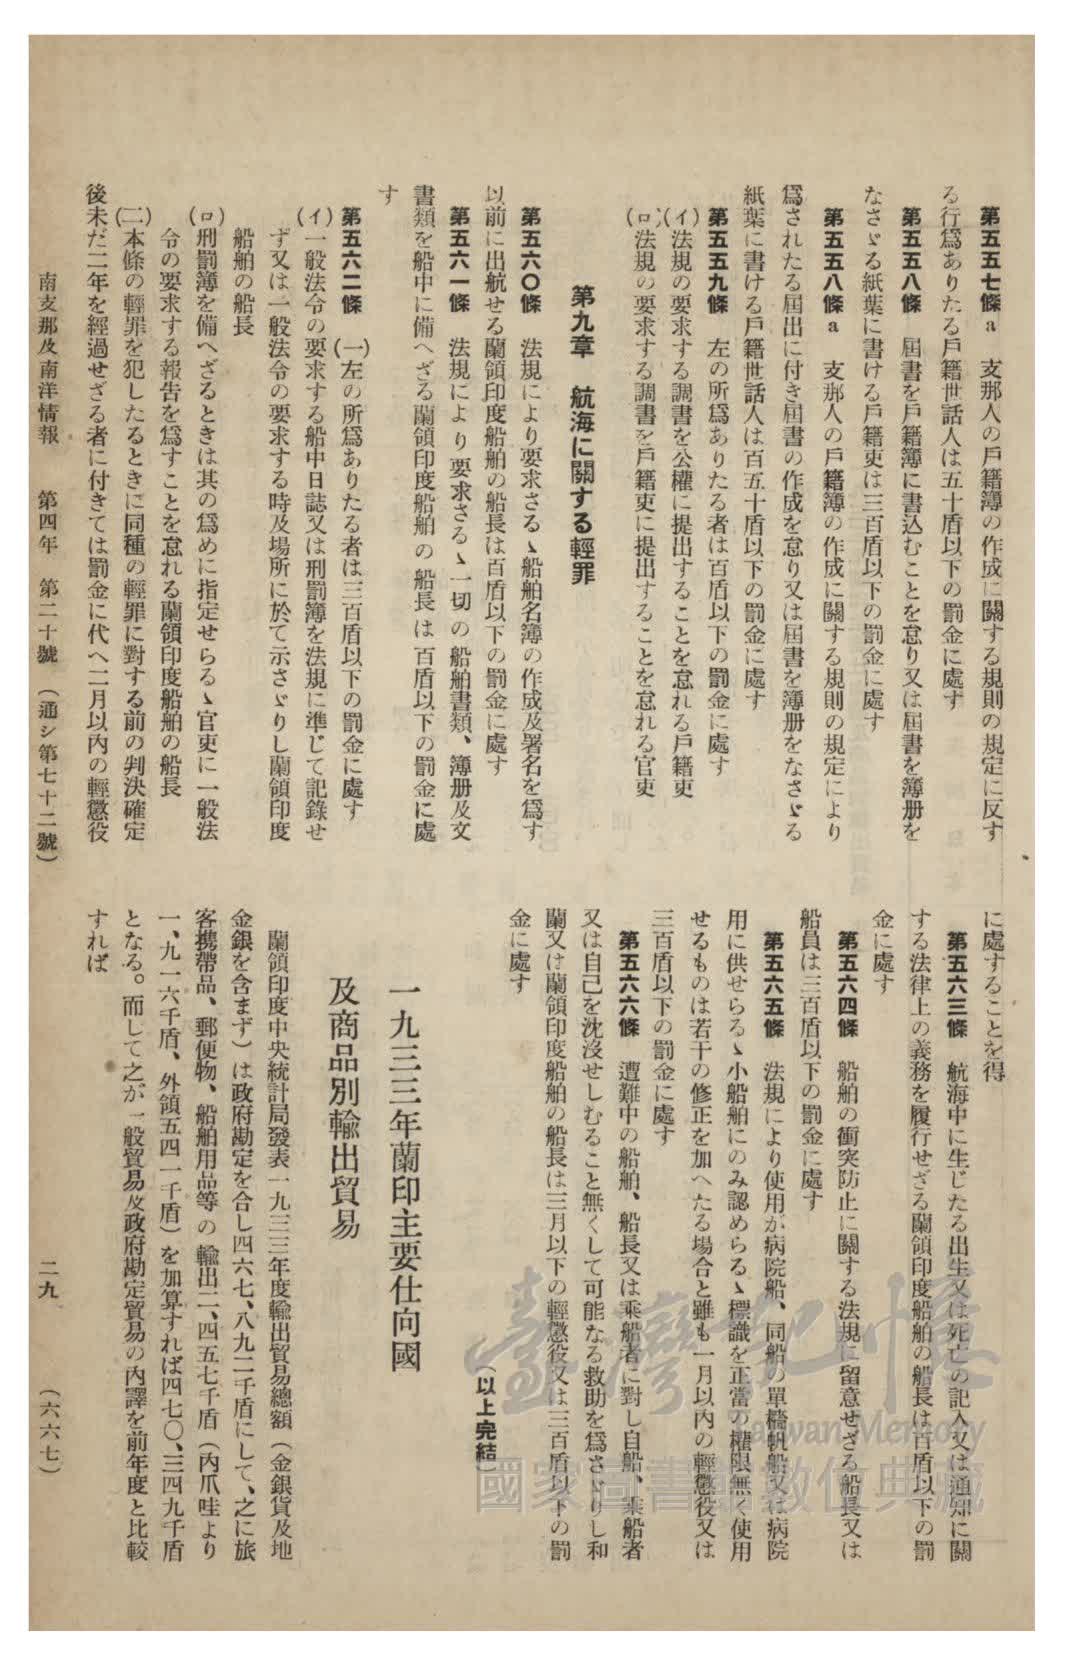 第五五七條a　支那人の戶籍簿の作成に關する規則の規定に反す
る行爲ありたる戶籍世話人は五十盾以下の罰金に處す
第五五八條　屆書を戶籍簿に書込むことを怠り又は屆書を簿册を
なさゞる紙葉に書ける戶籍吏は三百盾以下の罰金に處す
第五五八條a　支那人の戶籍簿の作成に關する規則の規定により
爲されたる屆出に付き屆書の作成を怠り又は屆書を簿册をなさゞる
紙葉に書ける戶籍世話人は百五十盾以下の罰金に處す
第五五九條　左の所爲ありたる者は百盾以下の罰金に處す
(イ)法規の要求する調書を公權に提出することを怠れる戶籍吏
(ロ)法規の要求する調書を戶籍吏に提出することを怠れる官吏
第九章　航海に關する輕罪
第五六〇條　法規により要求さるゝ船舶名簿の作成及署名を爲す
以前に出航せる蘭領印度船舶の船長は百盾以下の罰金に處す
第五六一條　法規により要求さるゝ一切の船舶書類、簿册及文
書類を船中に備へざる蘭領印度船舶の船長は百盾以下の罰金に處
す
第五六二條　(一)左の所爲ありたる者は三百盾以下の罰金に處す
(イ)一般法令の要求する船中日誌又は刑罰簿を法規に準じて記錄せ
ず又は一般法令の要求する時及場所に於て示さゞりし蘭領印度
船舶の船長
(ロ)刑罰簿を備へざるときは其の爲めに指定せらるゝ官吏に一般法
令の要求する報告を爲すことを怠れる蘭領印度船舶の船長
(二)本條の輕罪を犯したるときに同種の輕罪に對する前の判決確定
後未だ二年を經過せざる者に付きては罰金に代へ二月以內の輕懲役
に處することを得
第五六三條　航海中に生じたる出生又は死亡の記入又は通知に關
する法律上の義務を履行せざる蘭領印度船舶の船長は百盾以下の罰
金に處す
第五六四條　船舶の衝突防止に關する法規に留意せざる船長又は
船員は三百盾以下の罰金に處す
第五六五條　法規により使用が病院船、同船の單檣帆船又は病院
用に供せらるゝ小船舶にのみ認めらるゝ標識を正當の權限無く使用
せるものは若干の修正を加へたる場合と雖も一月以內の輕懲役又は
三百盾以下の罰金に處す
第五六六條　遭難中の船舶、船長又は乘船者に對し自船、乘船者
又は自己を沈沒せしむること無くして可能なる救助を爲さゞりし和
蘭又は蘭領印度船舶の船長は三月以下の輕懲役又は三百盾以下の罰
金に處す
(以上完結)
一九三三年蘭印主要仕向國
及商品別輸出貿易
蘭領印度中央統計局發表一九三三年度輸出貿易總額(金銀貨及地
金銀を含まず)は政府勘定を合し四六七、八九二千盾にして、之に旅
客携帶品、郵便物、船舶用品等の輸出二、四五七千盾(內爪哇より
一、九一六千盾、外領五四一千盾)を加算すれば四七〇、三四九千盾
となる。而して之が一般貿易及政府勘定貿易の內譯を前年度と比較
すれば
南支那及南洋情報　第四年　第二十號　(通シ第七十二號)　二九　(六六七)
臺灣記憶
Taiwan Memory
國家圖書館數位典藏